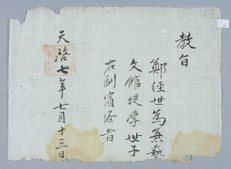 教旨
鄭經世爲兼藝
文館提學世子
右副賓客者
天啓七年七月十三日